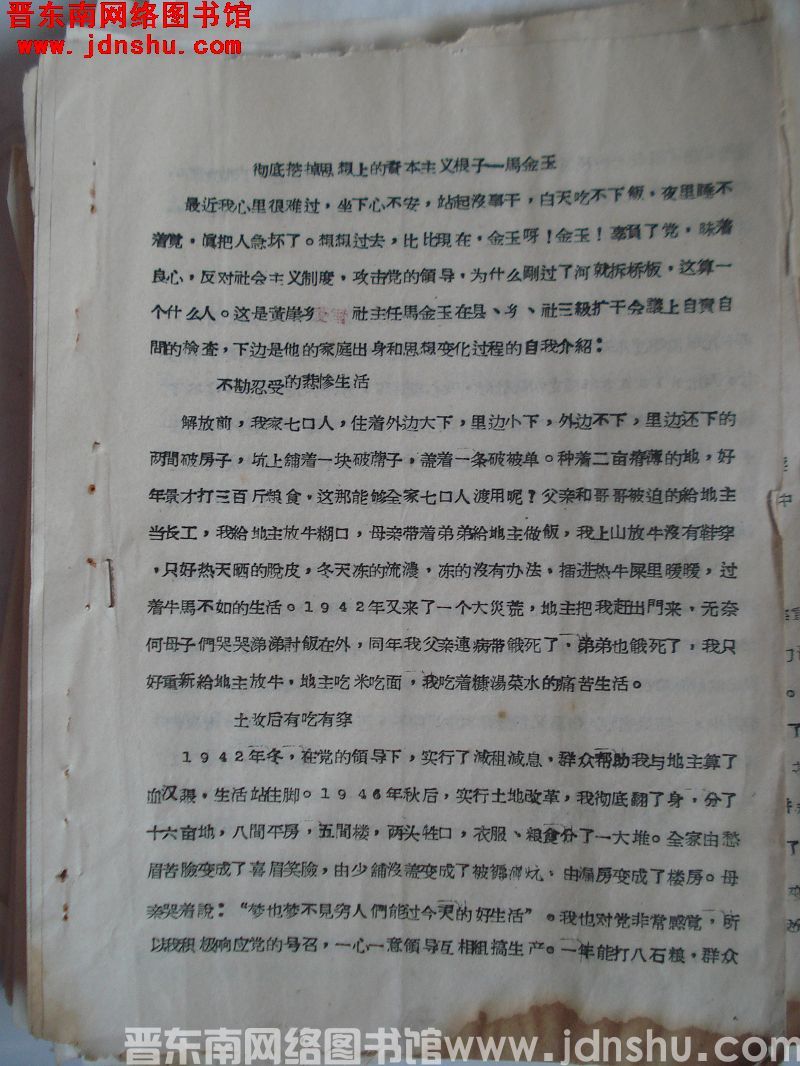 晋东南网络图书馆
www.jdnshu.com
彻底挖掉思想上的資本主义根子—馬金玉
最近我心里很难过，坐下心不安，站起沒事干，白天吃不下飯，夜里睡不
着覚，眞把人急坏了。想想过去，比比現在，金玉呀！金玉！辜負了党，昧着
良心，反对社会主义制度，攻击党的領导，为什么剛过了河就拆桥板，这算一
个什么人。这是黄崖乡 社主任馬金玉在县、乡、社三級扩干会議上自責自
問的檢査，下边是他的家庭出身和思想变化过程的自我介紹：
不勘忍受的悲惨生活
解放前，我家七口人，住着外边大下，里边小下，外边不下，里边还下的
两間破房子，坑上舖着一块破蓆子，盖着一条破被单。种着二亩瘠薄的地，好
年景才打三百斤粮食，这那能够全家七口人渡用呢？父亲和哥哥被迫的給地主
当长工，我給地主放牛糊口，母亲带着弟弟給地主做飯，我上山放牛沒有鞋穿
，只好热天晒的脫皮，冬天冻的流濃，冻的沒有办法，插进热牛屎里暖暖，过
着牛馬不如的生活。1942年又来了一个大災荒，地主把我赶出門来，无奈
何母子們哭哭涕涕討飯在外，同年我父亲連病带餓死了，弟弟也餓死了，我只
好重新給地主放牛，地主吃米吃面，我吃着糠湯菜水的痛苦生活。
土改后有吃有穿
1942年冬，在党的領导下，实行了減租減息，群众帮助我与地主算了
血汉賬，生活站住脚。1946年秋后，实行土地改革，我彻底翻了身，分了
十六亩地，八間平房，五間楼，两头牲口，衣服、粮食分了一大堆。全家由愁
眉苦臉变成了喜眉笑臉，由少舖沒盖变成了被褥 炕，由漏房变成了楼房。母
亲哭着說：“梦也梦不見穷人們能过今天的好生活”。我也对党非常感覚，所
以我积极响应党的号召，一心一意領导互相組搞生产。一年能打八石粮，群众
晋东南网络图书馆www.jdnshu.com